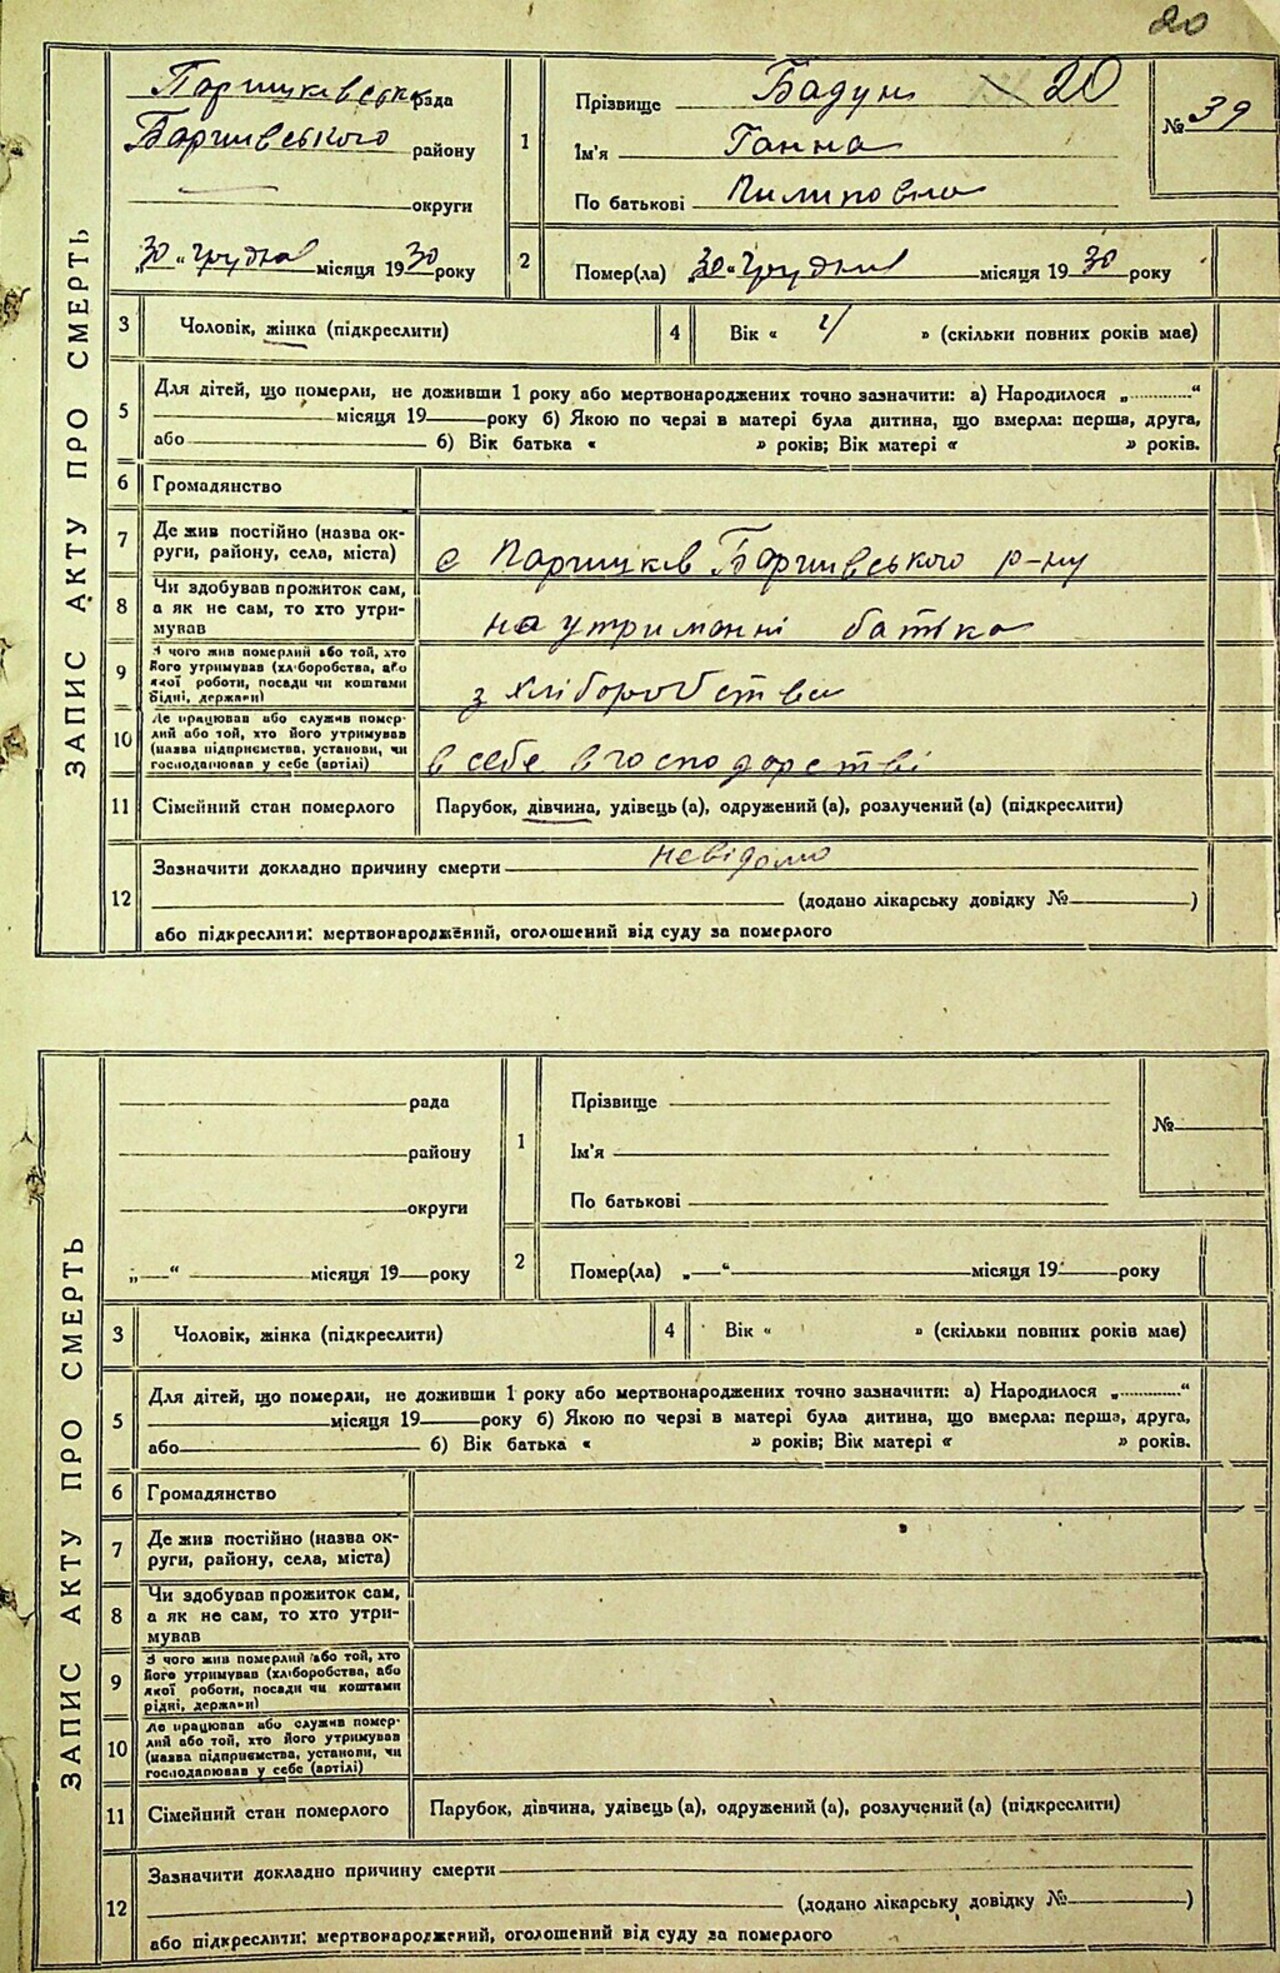 20
ЗАПИС АКТУ ПРО СМЕРТЬ
Паришківська рада
Баришівського району
округи
„30“ грудня місяця 1930 року
1
Прізвище Бадун 20
Ім'я Ганна
По батькові Пилиповна
№ 39
2
Помер(ла) „30“ грудня місяця 1930 року
3 Чоловік, жінка (підкреслити)
4 Вік « » (скільки повних років має)
5 Для дітей, що померли, не доживши 1 року або мертвонароджених точно зазначити: а) Народилося „............“
місяця 19 року б) Якою по черзі в матері була дитина, що вмерла: перша, друга,
або б) Вік батька « » років; Вік матері « » років.
6 Громадянство
7 Де жив постійно (назва ок-
руги, району, села, міста)
с Паришків Баришівського р-ну
8 Чи здобував прожиток сам,
а як не сам, то хто утри-
мував
на утриманні батька
9 З чого жив померлий або той, хто
його утримував (хліборобства, або
якої роботи, посади чи коштами
рідні, держави)
з хліборобства
10 Де працював або служив помер-
лий або той, хто його утримував
(назва підприємства, установи, чи
господарював у себе (артілі)
в себе в господарстві
11 Сімейний стан померлого Парубок, дівчина, удівець (а), одружений (а), розлучений (а) (підкреслити)
12 Зазначити докладно причину смерти невідомо
(додано лікарську довідку № )
або підкреслити: мертвонароджений, оголошений від суду за померлого
ЗАПИС АКТУ ПРО СМЕРТЬ
рада
району
округи
„ “ місяця 19 року
1
Прізвище
Ім'я
По батькові
№
2
Помер(ла) „ “ місяця 19 року
3 Чоловік, жінка (підкреслити)
4 Вік « » (скільки повних років має)
5 Для дітей, що померли, не доживши 1 року або мертвонароджених точно зазначити: а) Народилося „............“
місяця 19 року б) Якою по черзі в матері була дитина, що вмерла: перша, друга,
або б) Вік батька « » років; Вік матері « » років.
6 Громадянство
7 Де жив постійно (назва ок-
руги, району, села, міста)
8 Чи здобував прожиток сам,
а як не сам, то хто утри-
мував
9 З чого жив померлий або той, хто
його утримував (хліборобства, або
якої роботи, посади чи коштами
рідні, держави)
10 Де працював або служив помер-
лий або той, хто його утримував
(назва підприємства, установи, чи
господарював у себе (артілі)
11 Сімейний стан померлого Парубок, дівчина, удівець (а), одружений (а), розлучений (а) (підкреслити)
12 Зазначити докладно причину смерти
(додано лікарську довідку № )
або підкреслити: мертвонароджений, оголошений від суду за померлого